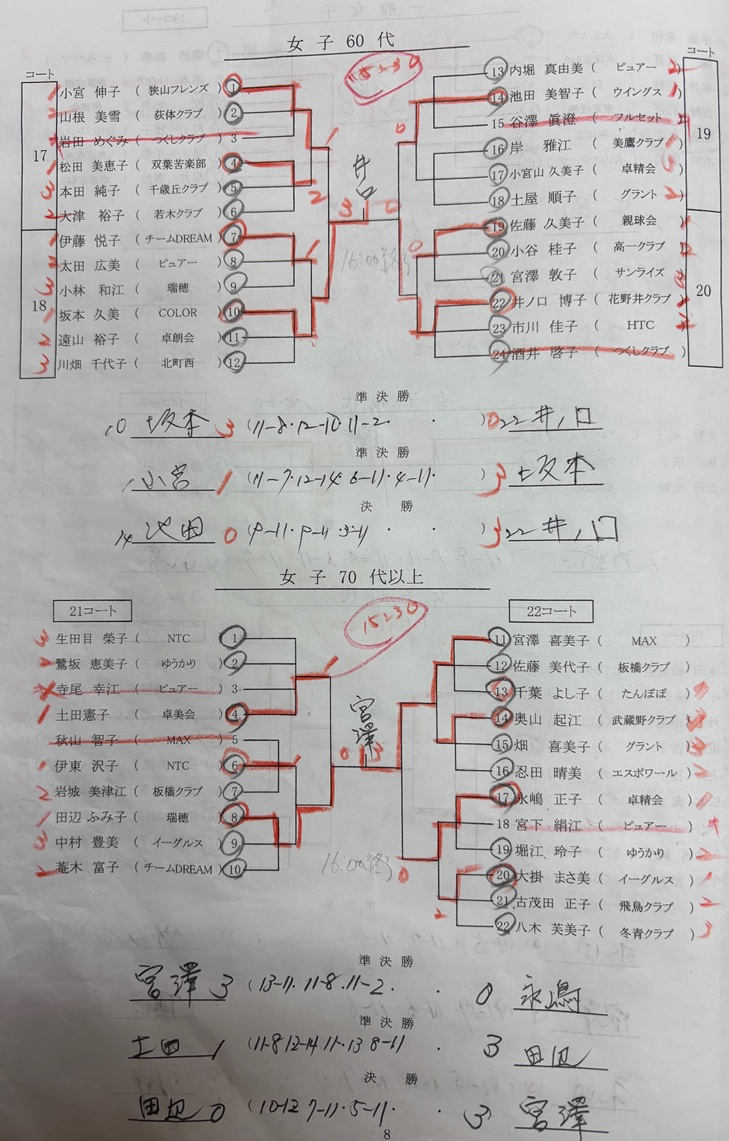 女 子 60 代
15:30
コート
コート
17
18
19
20
1 小宮 伸子 ( 狭山フレンズ ) 1
2 山根 美雪 ( 荻体クラブ ) 2
岩田 めぐみ ( つくしクラブ ) 3
1 松田 美恵子 ( 双葉苦楽部 ) 4
3 本田 純子 ( 千歳丘クラブ ) 5
2 大津 裕子 ( 若木クラブ ) 6
1 伊藤 悦子 ( チームDREAM ) 7
2 太田 広美 ( ピュアー ) 8
3 小林 和江 ( 瑞穂 ) 9
1 坂本 久美 ( COLOR ) 10
2 遠山 裕子 ( 卓朗会 ) 11
3 川畑 千代子 ( 北町西 ) 12
13 内堀 真由美 ( ピュアー ) 2
14 池田 美智子 ( ウイングス ) 1
15 谷澤 眞澄 ( フルセット )
16 岸 雅江 ( 美鷹クラブ ) 1
17 小宮山 久美子 ( 卓精会 ) 3
18 土屋 順子 ( グラント ) 2
19 佐藤 久美子 ( 親球会 )
20 小谷 桂子 ( 高一クラブ )
21 宮澤 敦子 ( サンライズ )
22 井ノ口 博子 ( 花野井クラブ )
23 市川 佳子 ( HTC )
24 酒井 啓子 ( つくしクラブ )
井口
16:00終了
準 決 勝
10 坂本 3 ( 11-8・12-10 11-2・ ・ ) 0 22 井ノ口
準 決 勝
1 小宮 1 ( 11-7・12-14 6-11・4-11・ ) 3 坂本
決 勝
14 池田 0 ( 9-11・9-11・3-11 ・ ・ ) 3 22 井ノ口
女 子 70 代以上
15:30
21コート
22コート
3 生田目 榮子 ( NTC ) 1
2 鷺坂 恵美子 ( ゆうかり ) 2
寺尾 幸江 ( ピュアー ) 3
1 土田憲子 ( 卓美会 ) 4
秋山 智子 ( MAX ) 5
1 伊東 沢子 ( NTC ) 6
2 岩城 美津江 ( 板橋クラブ ) 7
1 田辺 ふみ子 ( 瑞穂 ) 8
3 中村 豊美 ( イーグルス ) 9
2 菴木 富子 ( チームDREAM ) 10
11 宮澤 喜美子 ( MAX )
12 佐藤 美代子 ( 板橋クラブ )
13 千葉 よし子 ( たんぽぽ )
14 奥山 起江 ( 武蔵野クラブ )
15 畑 喜美子 ( グラント )
16 忍田 晴美 ( エスポワール ) 2
17 永嶋 正子 ( 卓精会 ) 1
18 宮下 絹江 ( ピュアー )
19 堀江 玲子 ( ゆうかり ) 2
20 大掛 まさ美 ( イーグルス ) 1
21 古茂田 正子 ( 飛鳥クラブ ) 2
22 八木 芙美子 ( 冬青クラブ ) 3
宮澤
16:00終了
準 決 勝
宮澤 3 ( 13-11・11-8・11-2・ ・ 0 永嶋
準 決 勝
土田 1 ( 11-8 12-14 11・13 8-11 ・ 3 田辺
決 勝
田辺 0 ( 10-12 7-11・5-11・ ・ 3 ) 宮澤
8